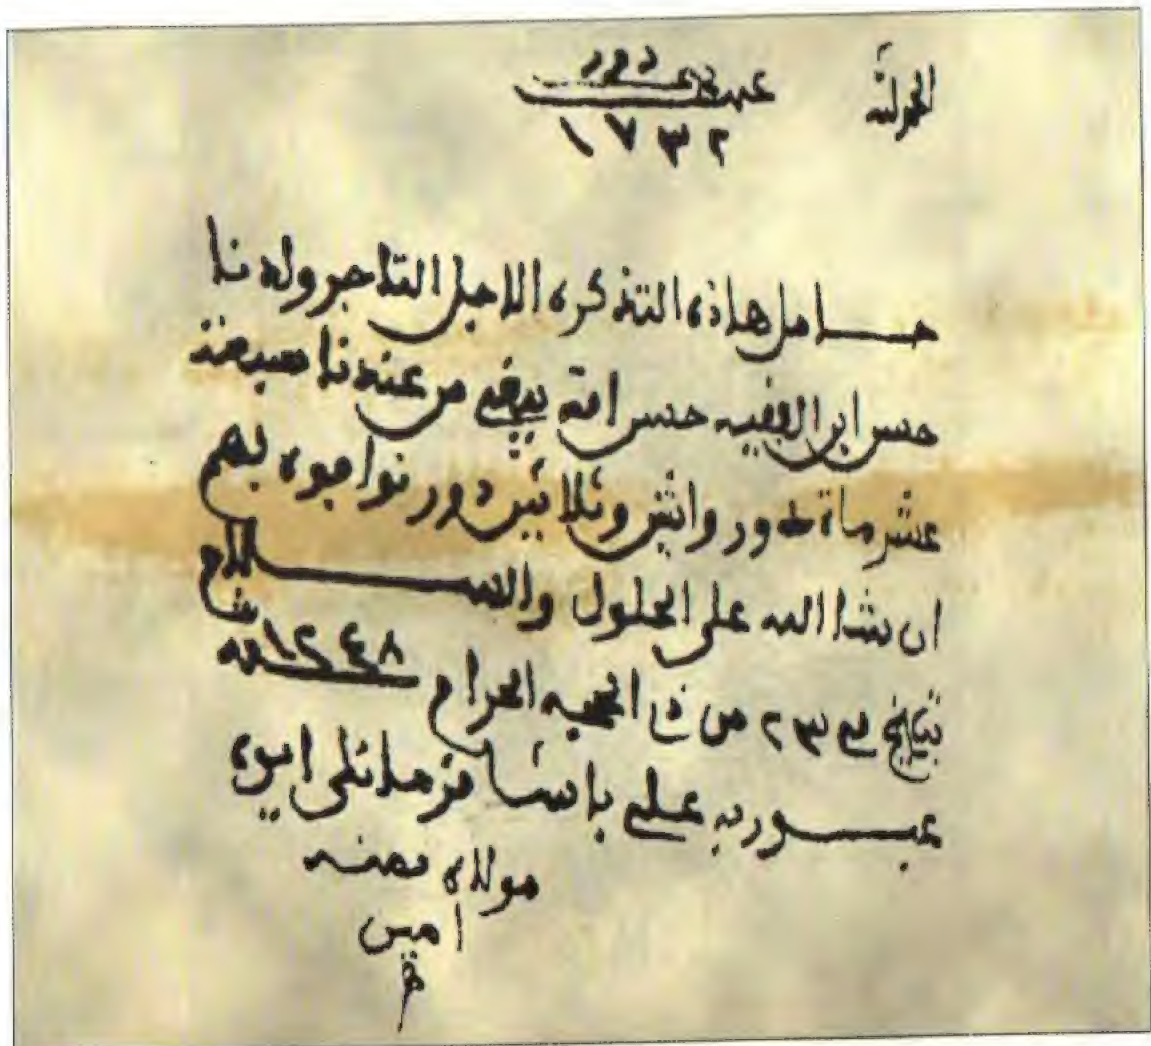 الحمد لله
عدد دور
١٧٣٢
حامل هاذه التذكره الاجل التاجر ولدنا
حسن ابن الفقيه حسن امه يبقى من عندنا سبعة
عشر ماة دور واثنين وثلاثين دور نواجبوه بهم
ان شا الله على الحلول والسلام
بتاريخ في ٢٣ من ذي الحجه الحرام سنة ١٢٤٨
عبد ربه علي باشا قرمانلي ايده
مولاه بمنه
امين